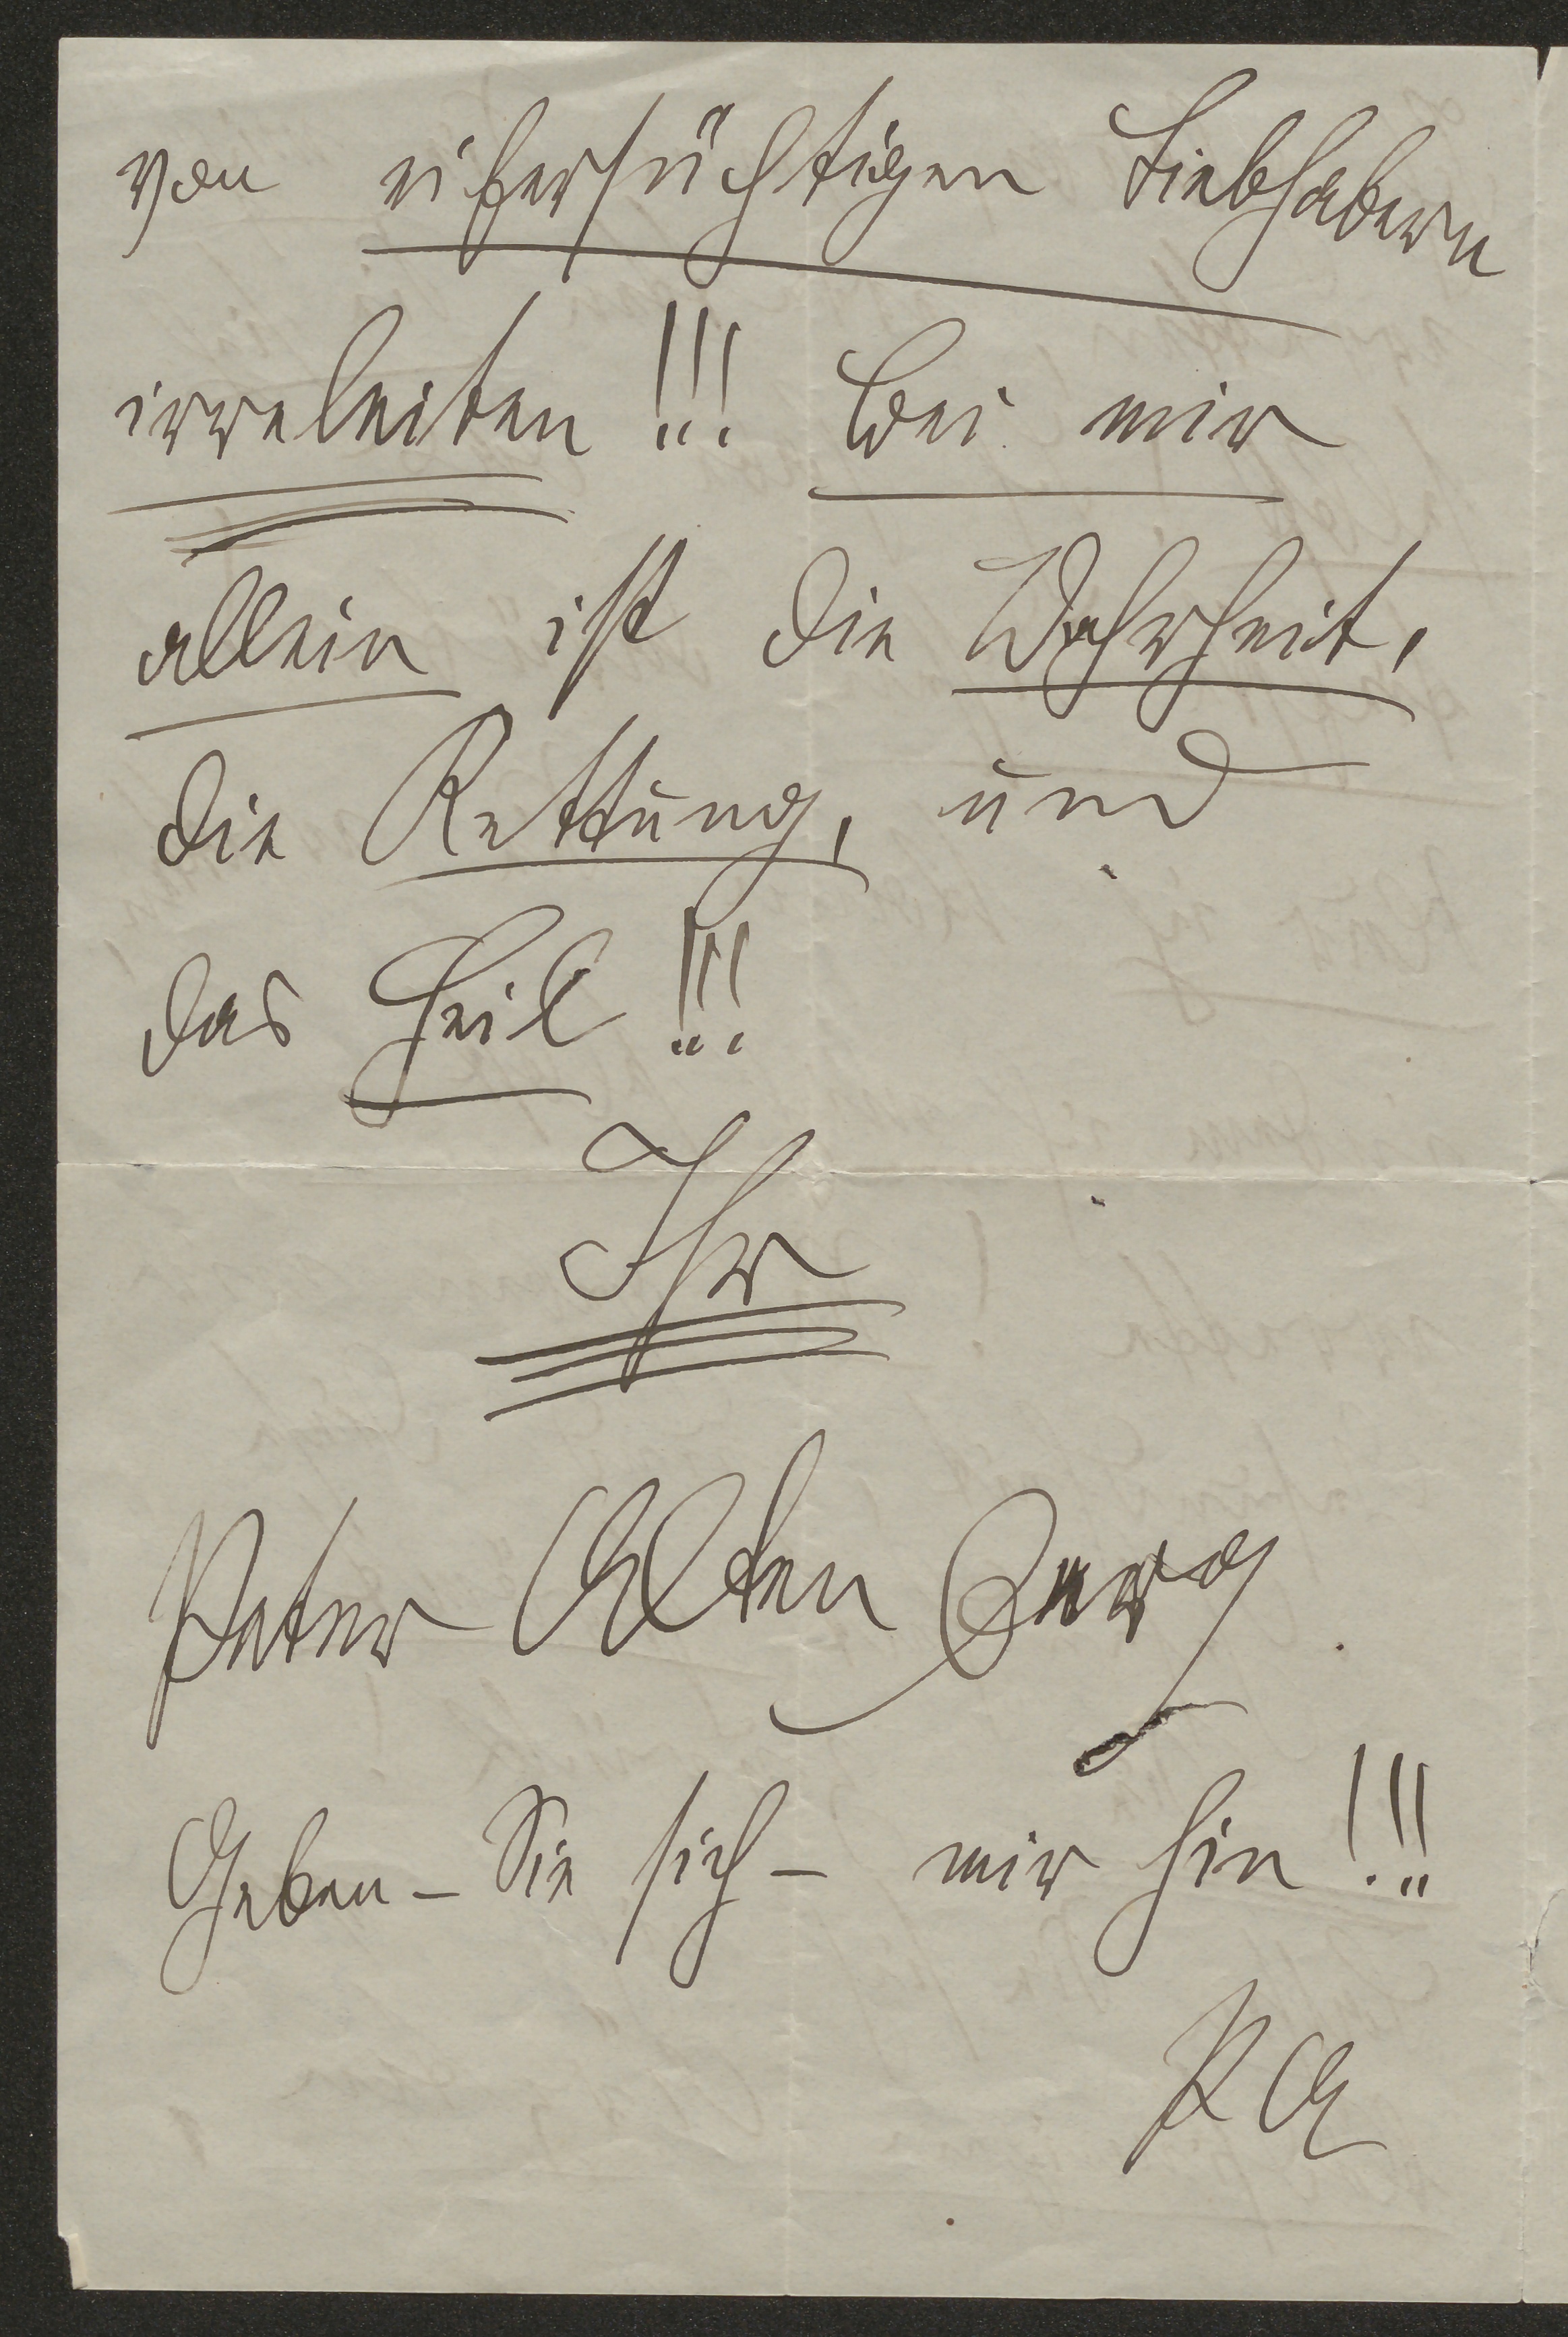 von eifersüchtigen Liebhabern
irreleiten!!! Bei mir
allein ist die Wahrheit,
die Rettung, und
das Heil!!!
Ihr
Peter Altenberg
Geben - Sie sich - mir hin!!!
PA